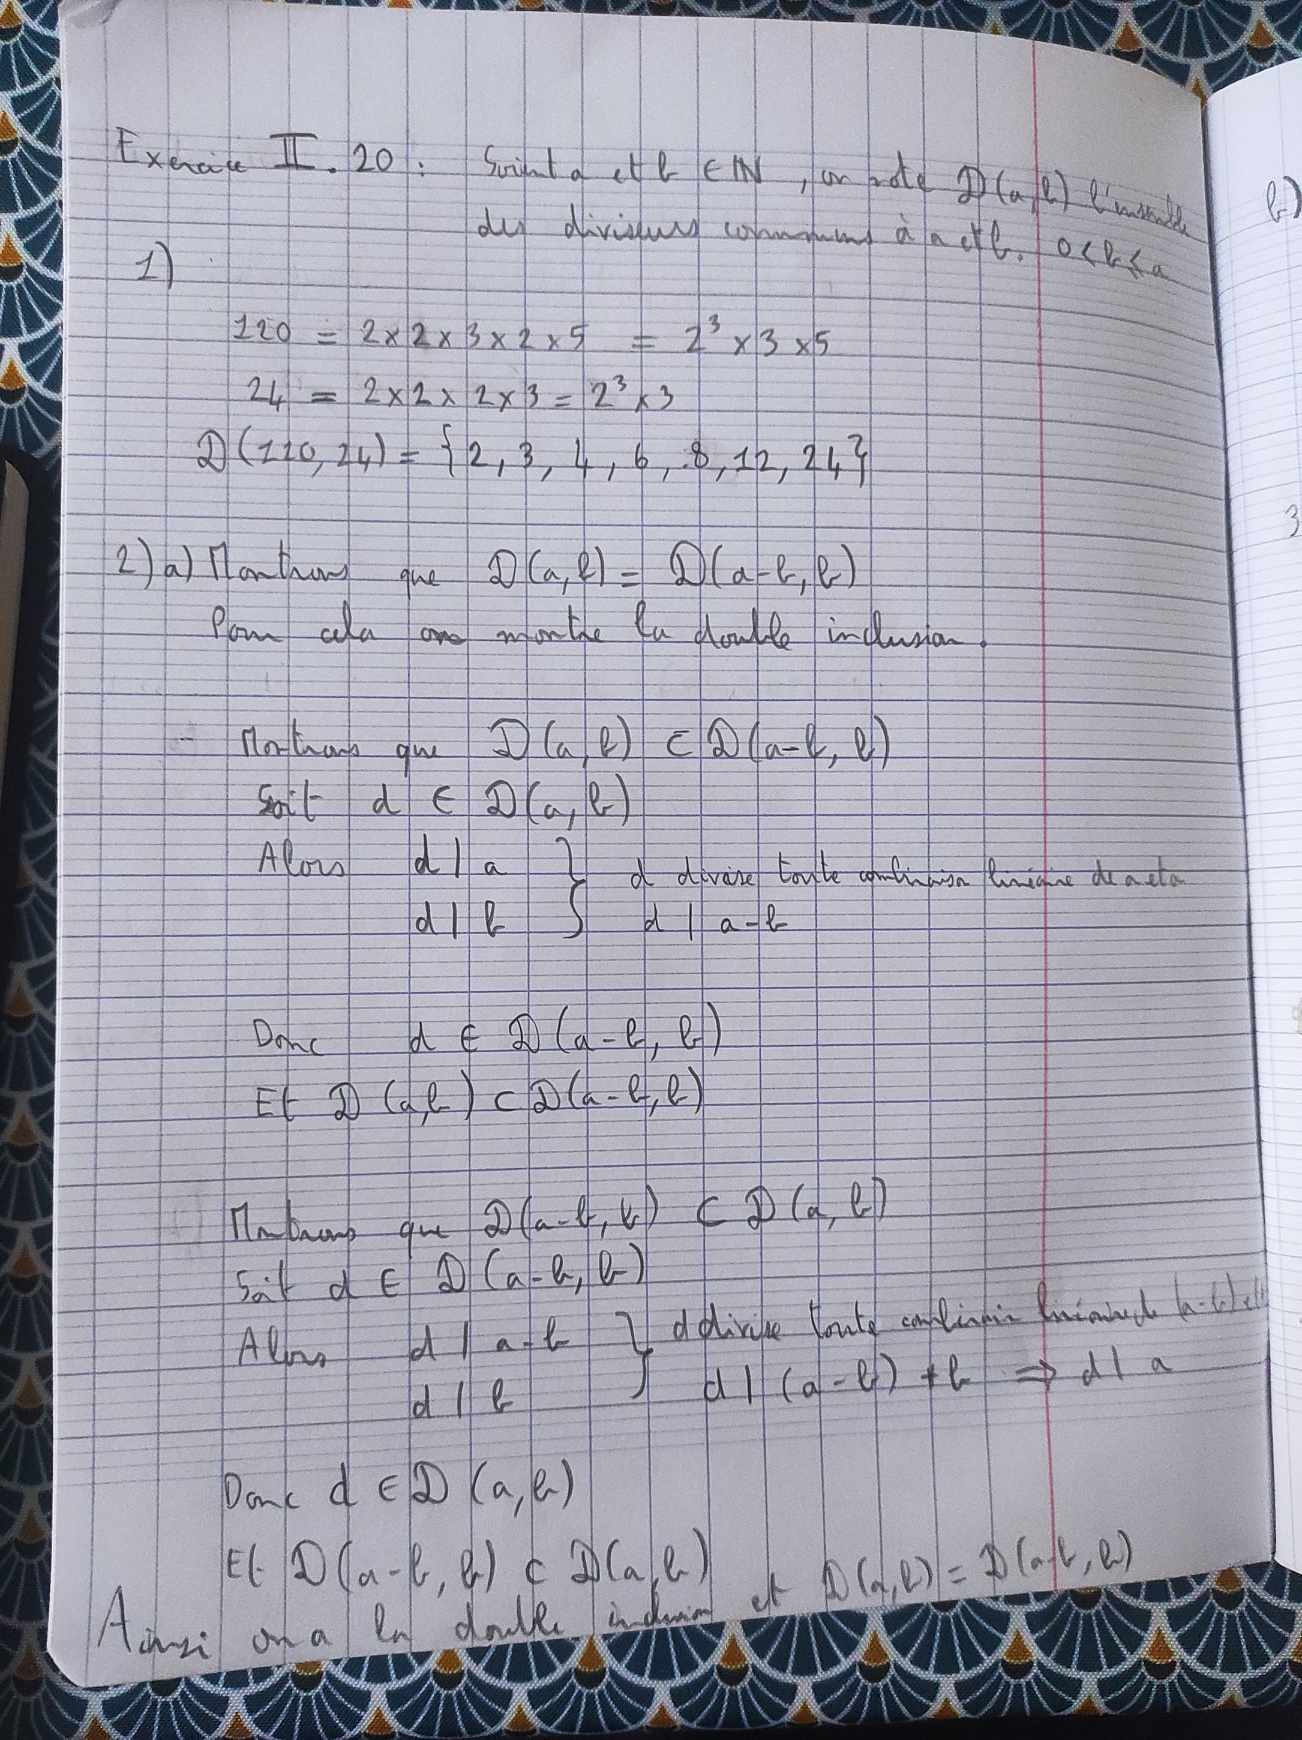 Exercice II.20 : Soient a et b ∈ IN, on note D(a,b) l'ensemble
des diviseurs communs à a et b. 0<b<a
1)
120 = 2×2×3×2×5 = 2³×3×5
24 = 2×2×2×3 = 2³×3
D(120,24) = {2, 3, 4, 6, 8, 12, 24}
2) a) Montrons que D(a,b) = D(a-b,b)
Pour cela on montre la double inclusion.
- Montrons que D(a,b) ⊂ D(a-b,b)
Soit d ∈ D(a,b)
Alors d | a } d divise toute combinaison linéaire de a et a
d | b d | a-b
Donc d ∈ D(a-b,b)
Et D(a,b) ⊂ D(a-b,b)
Montrons que D(a-b,b) ⊂ D(a,b)
Soit d ∈ D(a-b,b)
Alors d | a-b } d divise toute combinaison linéaire de (a-b) et
d | b d | (a-b)+b ⇒ d | a
Donc d ∈ D(a,b)
Et D(a-b,b) ⊂ D(a,b)
Ainsi on a la double inclusion et D(a,b) = D(a-b,b)
b)
3